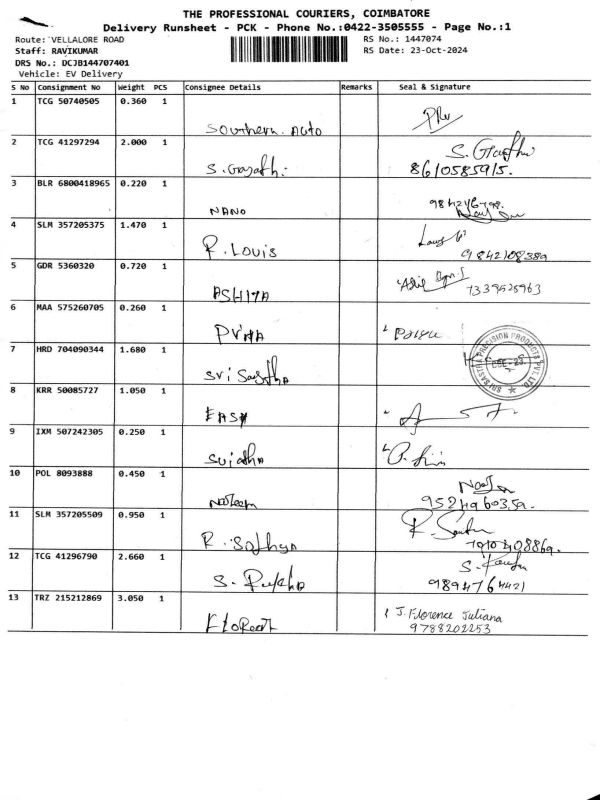 THE PROFESSIONAL COURIERS, COIMBATORE
Delivery Runsheet - PCK - Phone No.:0422-3505555 - Page No.:1
Route: VELLALORE ROAD
RS No.: 1447074
Staff: RAVIKUMAR
RS Date: 23-Oct-2024
DRS No.: DCJB144707401
Vehicle: EV Delivery
S No Consignment No Weight PCS Consignee Details Remarks Seal & Signature
1 TCG 50740505 0.360 1
Southern Auto
2 TCG 41297294 2.000 1
S. Gayathri
8610585915.
3 BLR 6800418965 0.220 1
NANO
4 SLM 357205375 1.470 1
R. Louis
9842108389
5 GDR 5360320 0.720 1
ASHIYA
7339525963
6 MAA 575260705 0.260 1
7 HRD 704090344 1.680 1
Sri Sastha
SRI SASTRA PRECISION PRODUCTS PVT. LTD
CBE-23.
8 KRR 50085727 1.050 1
EASY
9 IXM 507242305 0.250 1
Sujatha
10 POL 8093888 0.450 1
11 SLM 357205509 0.950 1
R. Sathya
12 TCG 41296790 2.660 1
S. Rekha
9894764421
13 TRZ 215212869 3.050 1
J. Florence Juliana
9788202253